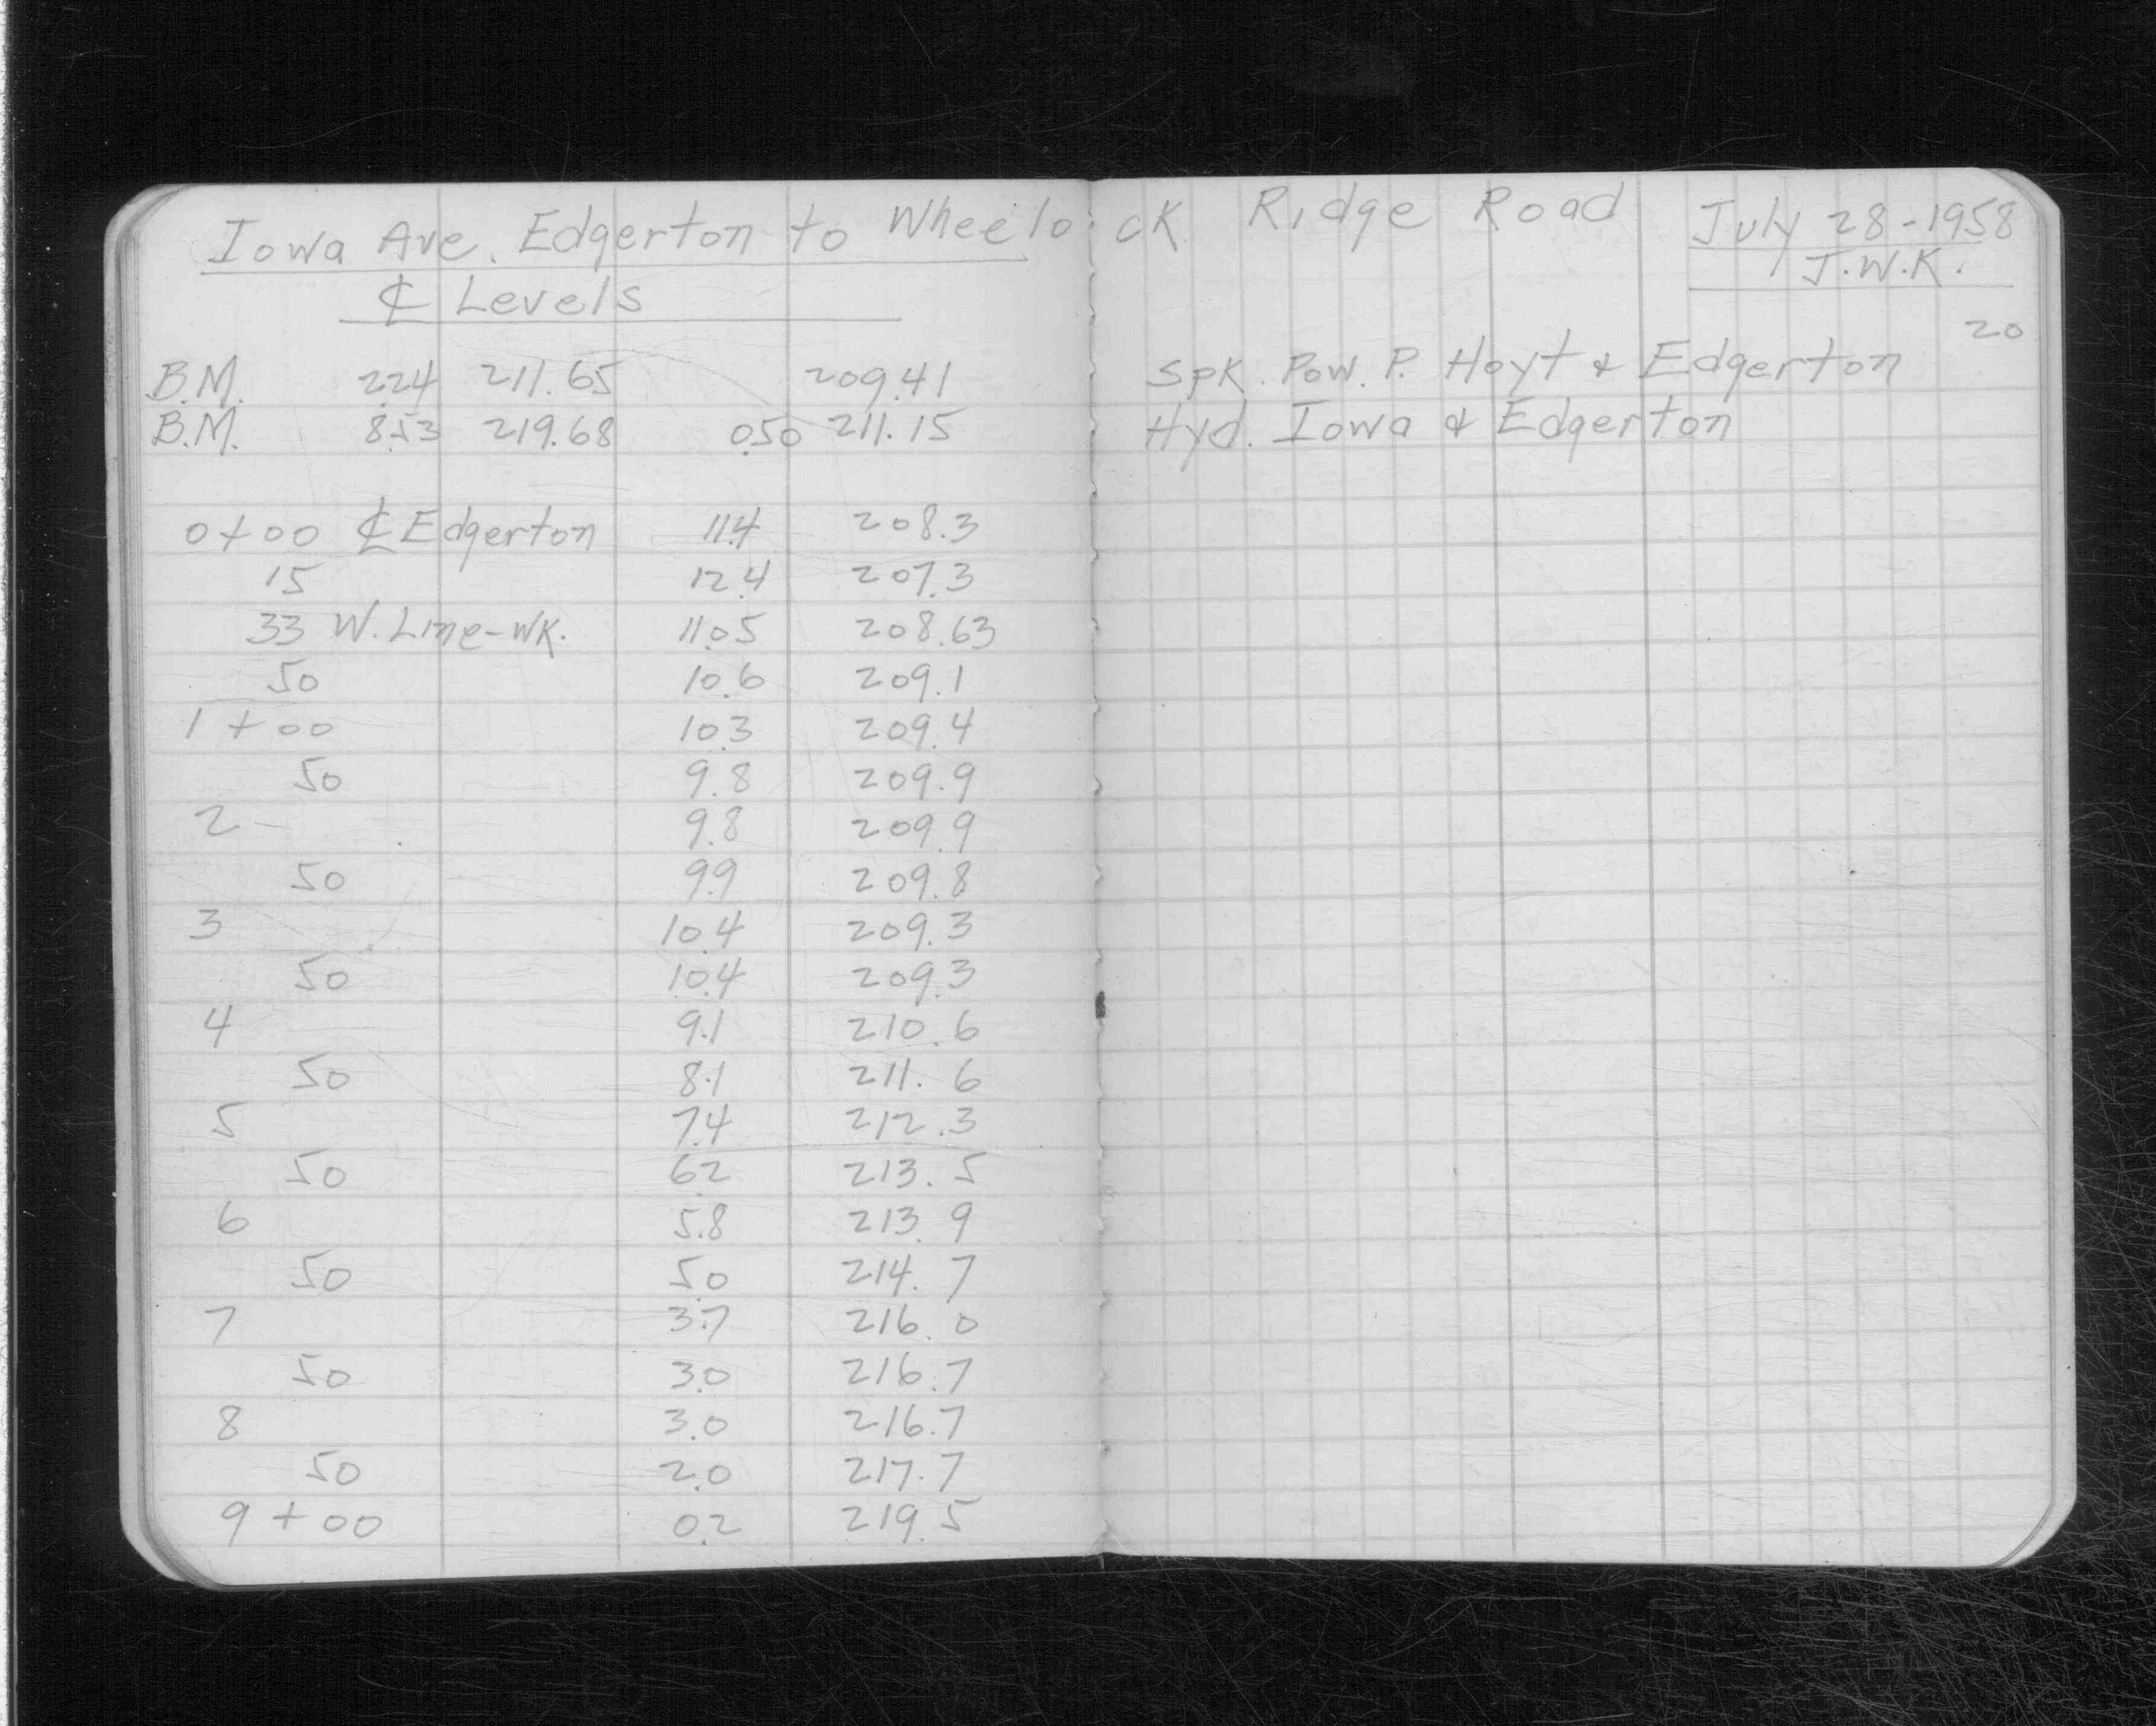 Iowa Ave. Edgerton to Wheelock Ridge Road July 28-1958
J.W.K.
℄ Levels
20
B.M. 2.24 211.65 209.41 Spk. Pow. P. Hoyt & Edgerton
B.M. 8.53 219.68 0.50 211.15 Hyd. Iowa & Edgerton
0+00 ℄ Edgerton 11.4 208.3
15 12.4 207.3
33 W. Line-WK. 11.05 208.63
50 10.6 209.1
1+00 10.3 209.4
50 9.8 209.9
2 9.8 209.9
50 9.9 209.8
3 10.4 209.3
50 10.4 209.3
4 9.1 210.6
50 8.1 211.6
5 7.4 212.3
50 6.2 213.5
6 5.8 213.9
50 5.0 214.7
7 3.7 216.0
50 3.0 216.7
8 3.0 216.7
50 2.0 217.7
9+00 0.2 219.5